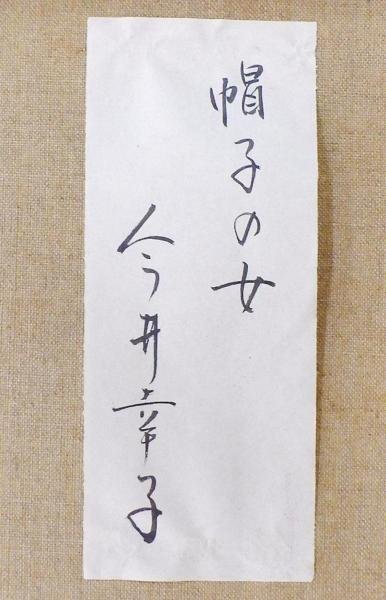 帽子の女
今井幸子